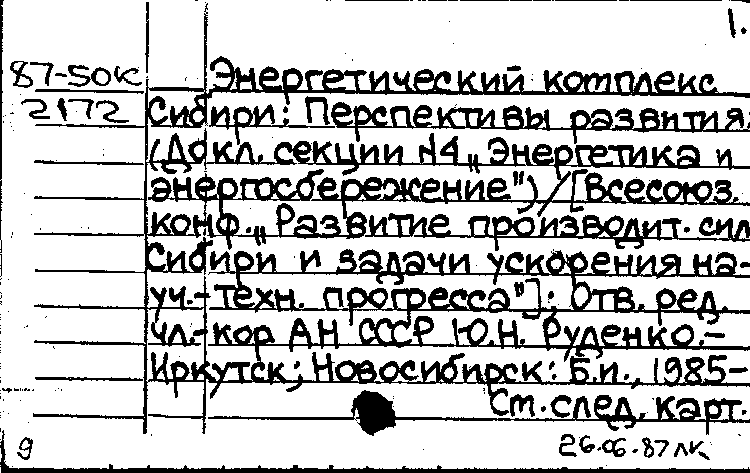 1.
87-50к Энергетический комплекс
2172 Сибири: Перспективы развития:
(Докл. секции №4 „Энергетика и
энергосбережение") / [Всесоюз.
конф. „Развитие производит. сил
Сибири и задачи ускорения на-
уч.-техн. прогресса"]; Отв. ред.
чл.-кор АН СССР Ю.Н. Руденко.-
Иркутск; Новосибирск: Б.и., 1985-
Ст. след. карт.
9 26.06.87 лк